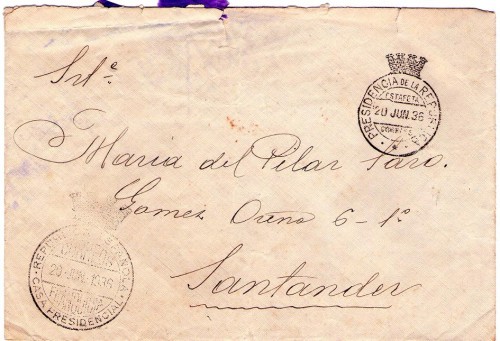 Srtᵉ
PRESIDENCIA DE LA REPUBLICA
ESTAFETA
20 JUN. 36
Maria del Pilar Saro.
Gomez Oreña 6-1º
Santander
REPUBLICA ESPAÑOLA
CORREOS
20 JUN. 1936
CASA PRESIDENCIAL